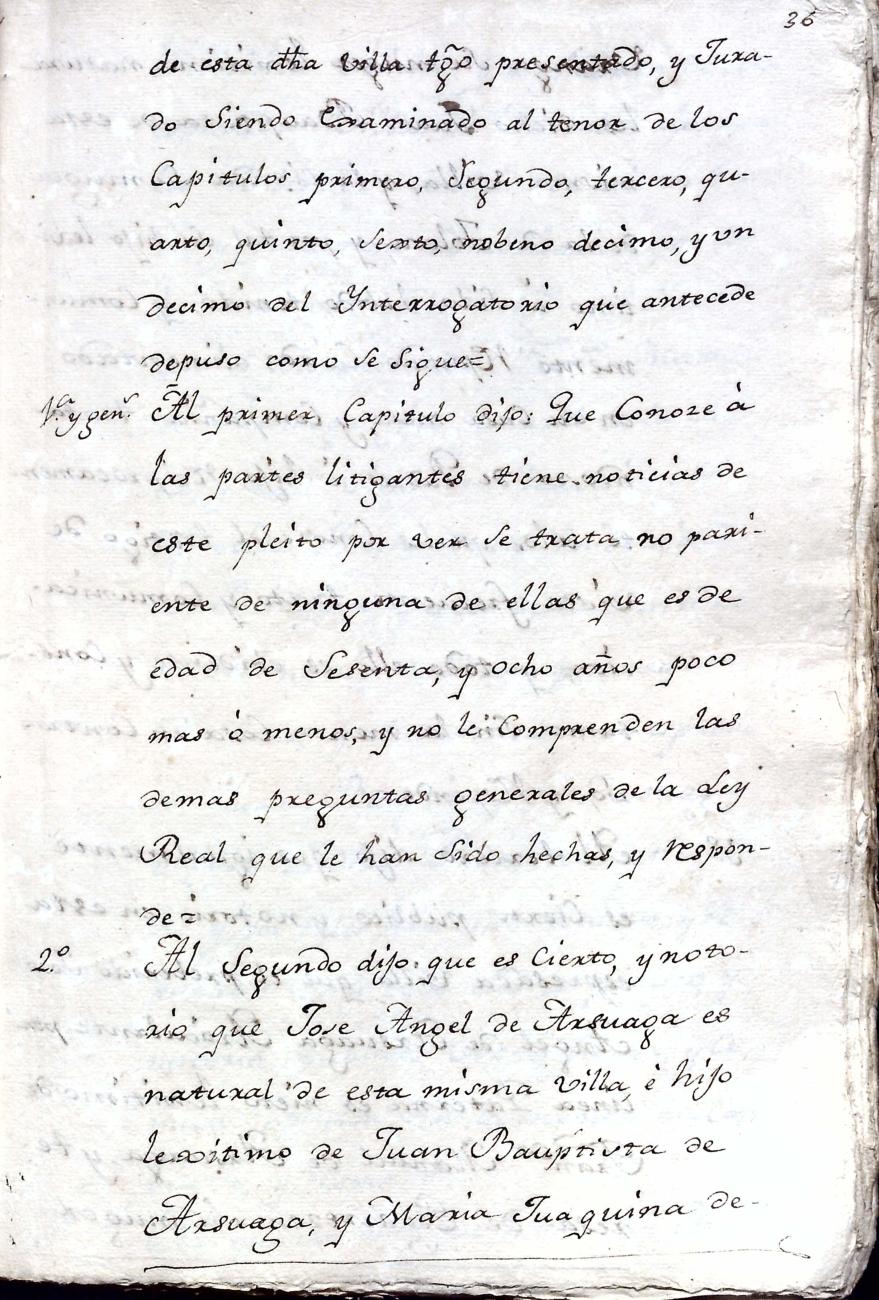 36
de esta dha villa tgõ presentado, y Jura-
do Siendo Examinado al tenor de los
Capitulos primero, Segundo, tercero, qu-
arto, quinto, Sexto, nobeno decimo, y un
decimo del Ynterrogatorio que antecede
depuso como se sigue=
1.ª y gen.s Al primer Capitulo dijo: Que Conoze à
las partes litigantes tiene noticias de
este pleito por ver se trata no pari-
ente de ninguna de ellas que es de
edad de Sesenta, y ocho años poco
mas ò menos, y no le Comprenden las
demas preguntas generales de la Ley
Real que le han sido hechas, y respon-
de=
2.º Al Segundo dijo que es Cierto, y noto-
rio que Jose Angel de Arsuaga es
natural de esta misma villa, è hijo
lexitimo de Juan Bauptista de
Arsuaga, y Maria Juaquina de-